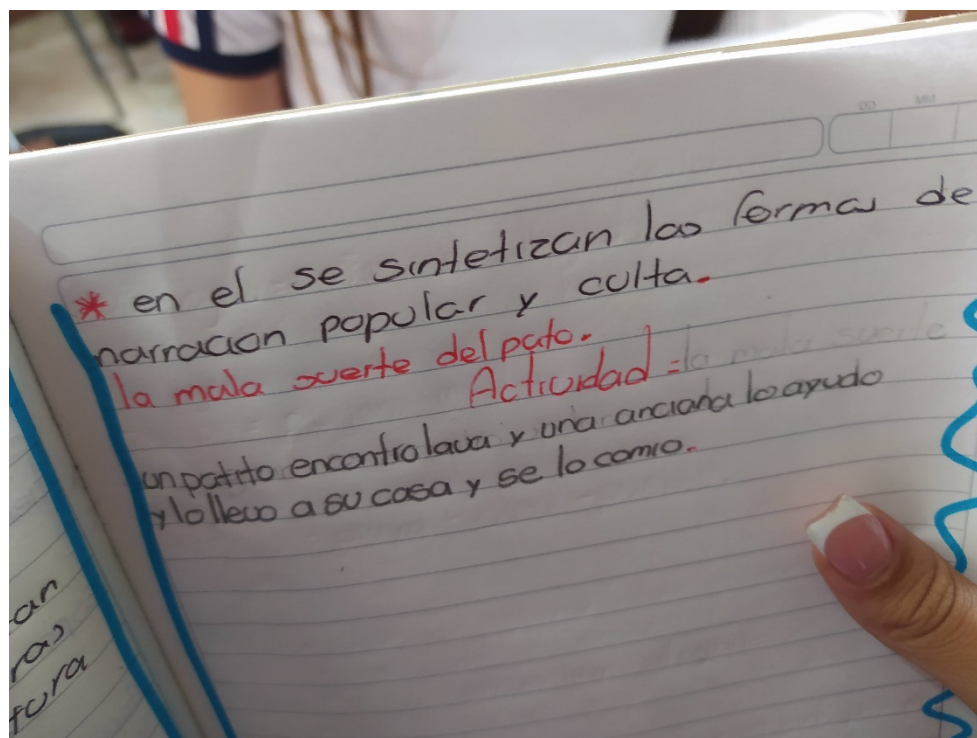 DD MM
* en el se sintetizan las formas de
narracion popular y culta.
la mala suerte del pato.
Actividad = la mala suerte
un patito encontro lava y una anciana lo ayudo
y lo llevo a su casa y se lo comio.
an
ras
tura